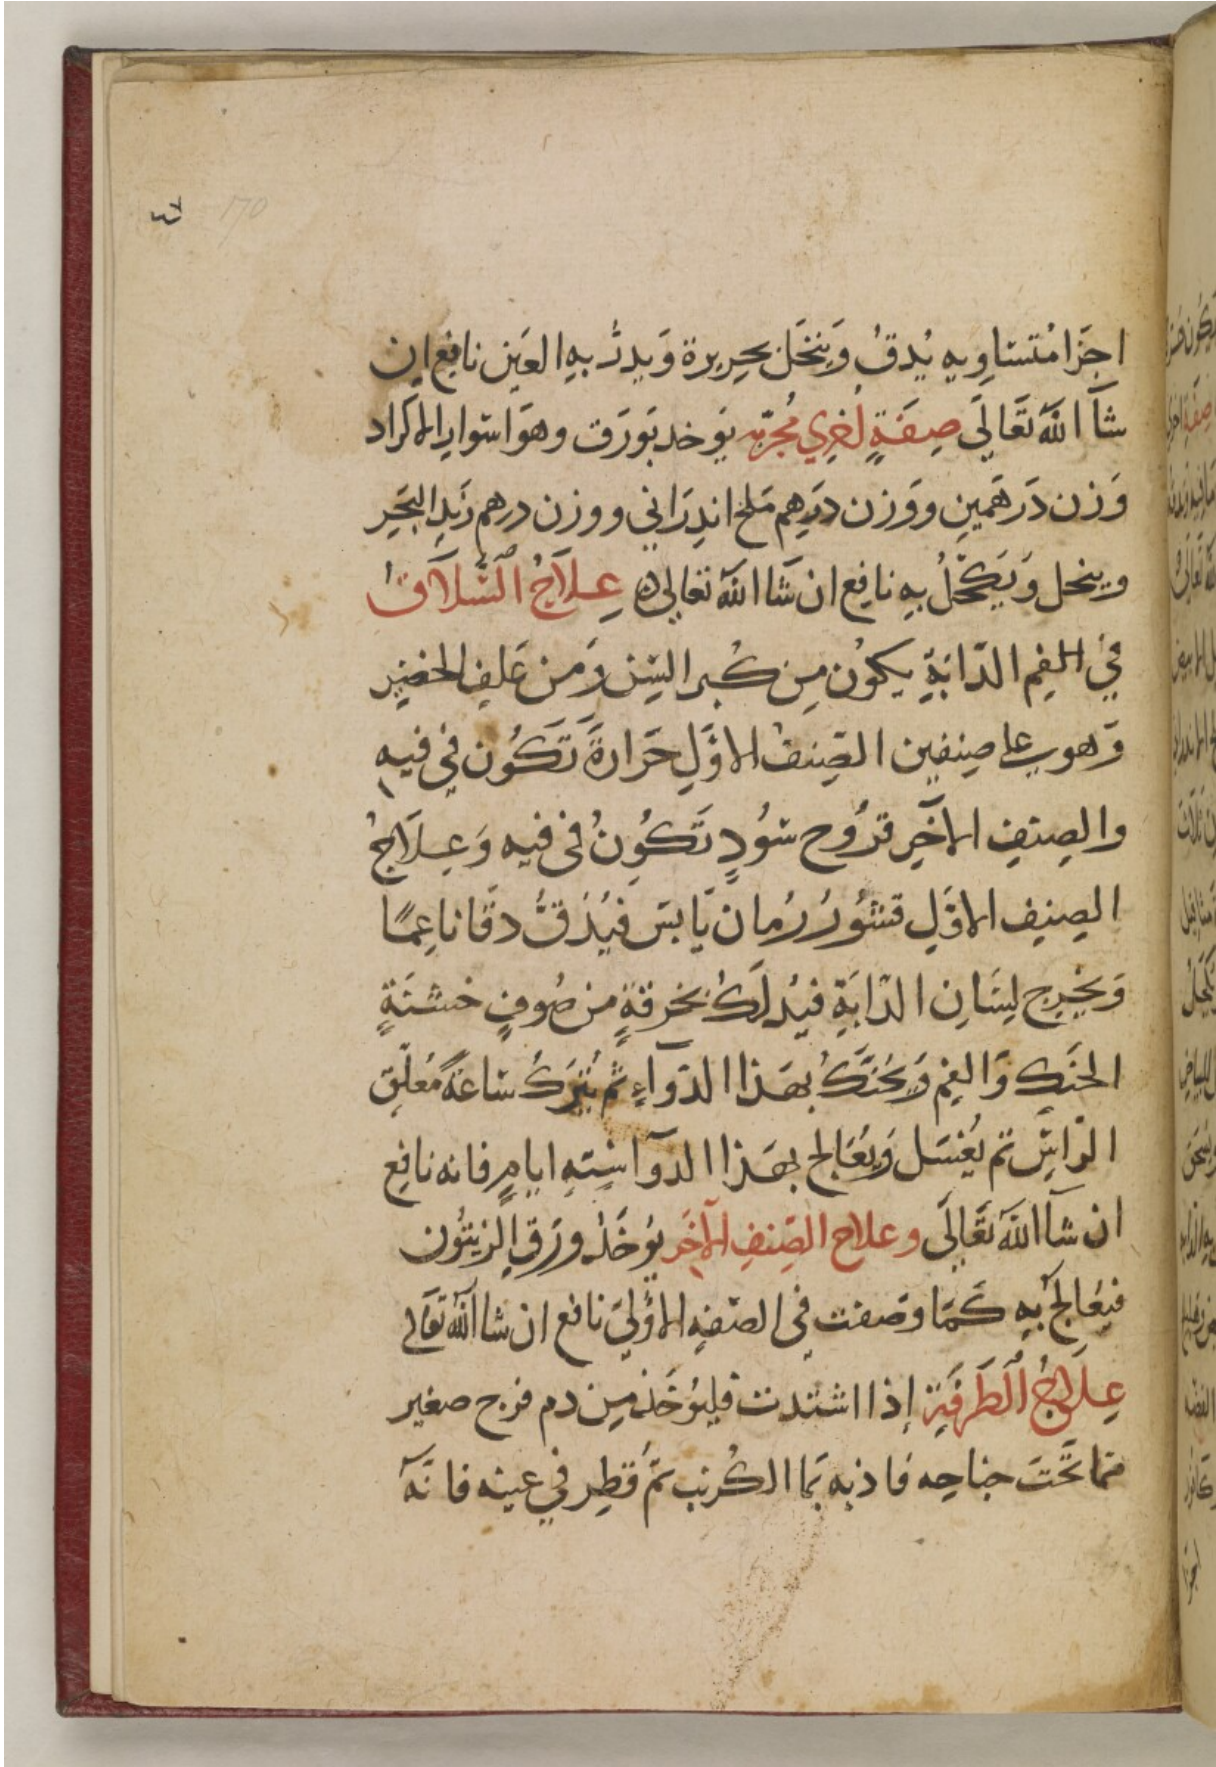 170
اجزا متساويه يُدقُ وَينخَل بحريرة وَيدرُّ بِهِ العَين نافِع اِن
شآ اللّه تَعَالَى صِفَةٍ لُخري مُجرّبه يوخد بَورَق وهوَ اسوار الاكراد
وَزن دَرهَمينِ ووَزن درهم مَلح اندِرَاني ووزن درهم زَبدِ البَحَر
وينخل وَيَكحّلُ بِهِ نافِع ان شَا اللّه تعَالى ه عِلَاجُ السّلَاقُ
في الفِم الدّابَةِ يكوُن مِن كُبر السِّن وَمن عَلفِ الخضِير
وَهو على صِنفين الصّنف الاوَّلِ حَرارةً تَكوُن في فيهِ
والصِنفِ الآخِر قرُوح سُودٍ تَكوُنُ في فيه وَعِلَاجُ
الصِنفِ الاوَّلِ قشُورُ رُمان يَابسَ فَيُدَقُّ دقًا ناعِمًا
وَيخرِج لِسَانِ الدّابَةِ فيُدلَكُ بخرقةٍ من صُوفٍ خشنَةٍ
الحنَكِ وَالفِم وَيحَنَّكُ بهَذا الدوَآءِ ثم يُترَكُ سَاعةً مُعَلّق
الرّاسِ ثم يُغسَل وَيُعَالج بهَذا الدوآ سِتهِ ايامٍ فانه نافِع
ان شآ اللّه تَعَالَى وعلاج الصّنفِ الآخَر يوُخَذ ورَقِ الزيتُون
فيعَالجُ بِهِ كَمَا وصَفت في الصّفهِ الاُوْلىَ نافع ان شا اللّه تعَالى
عِلَاجُ الطَرفَة إذا اشتدت فليوُخَذ مِن دم فرخ صغير
مما تَحتَ جناحِه فاذبه بَما الكُرنب ثمَّ قطِر في عينه فانّهَ